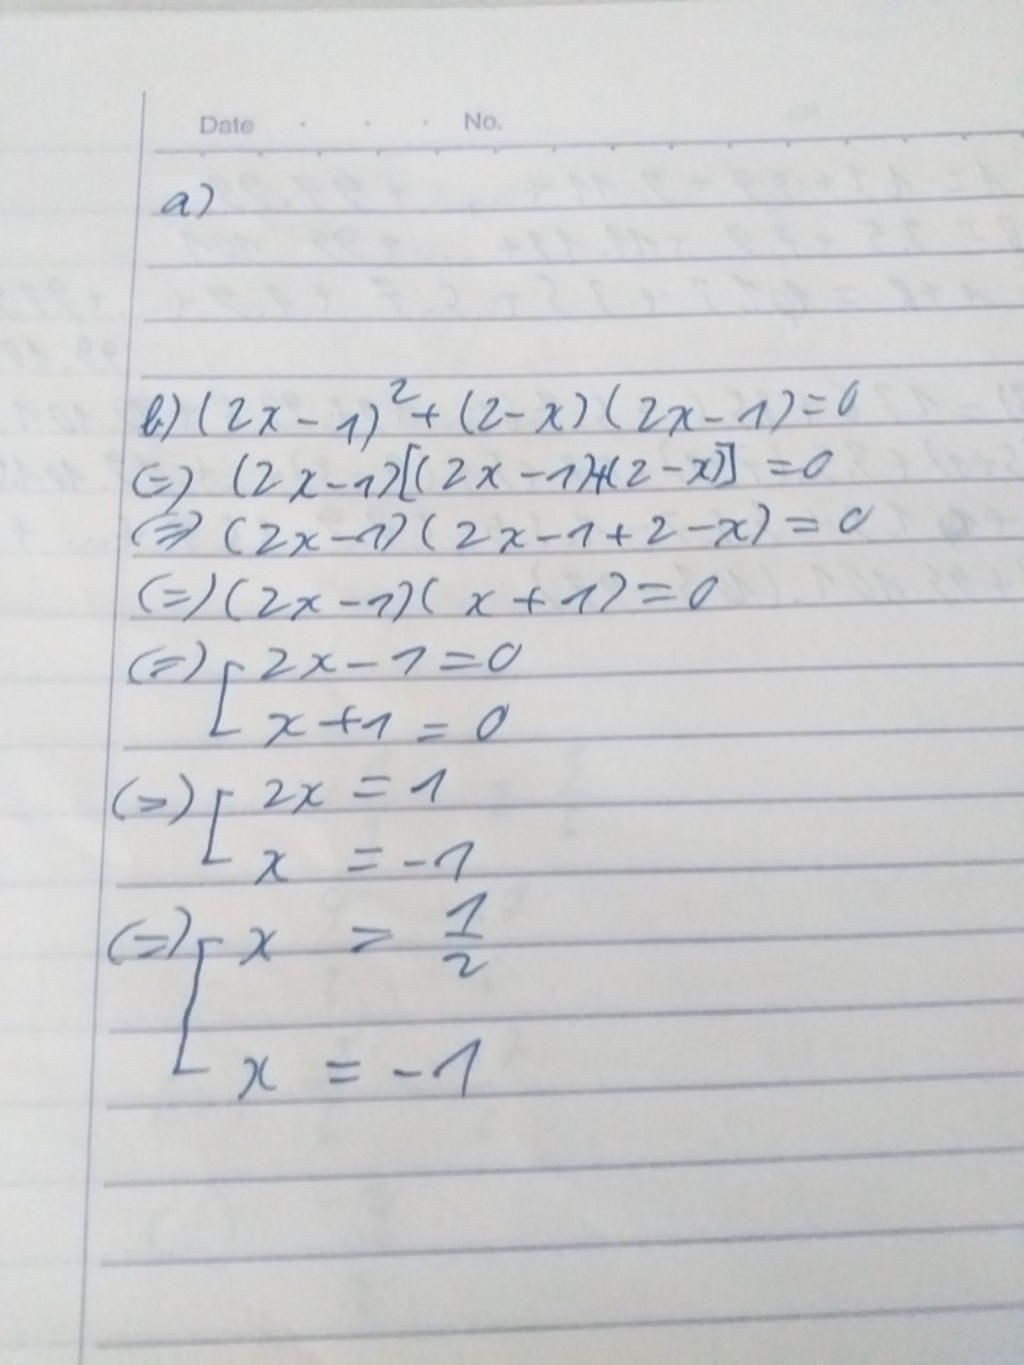 Date No.
a)
b) (2x-1)² + (2-x)(2x-1)=0
(=) (2x-1)[(2x-1)+(2-x)] =0
(=) (2x-1)(2x-1+2-x)=0
(=) (2x-1)( x+1)=0
(=) [ 2x-1=0
x+1=0
(=) [ 2x = 1
x = -1
(=) [ x = 1/2
x = -1